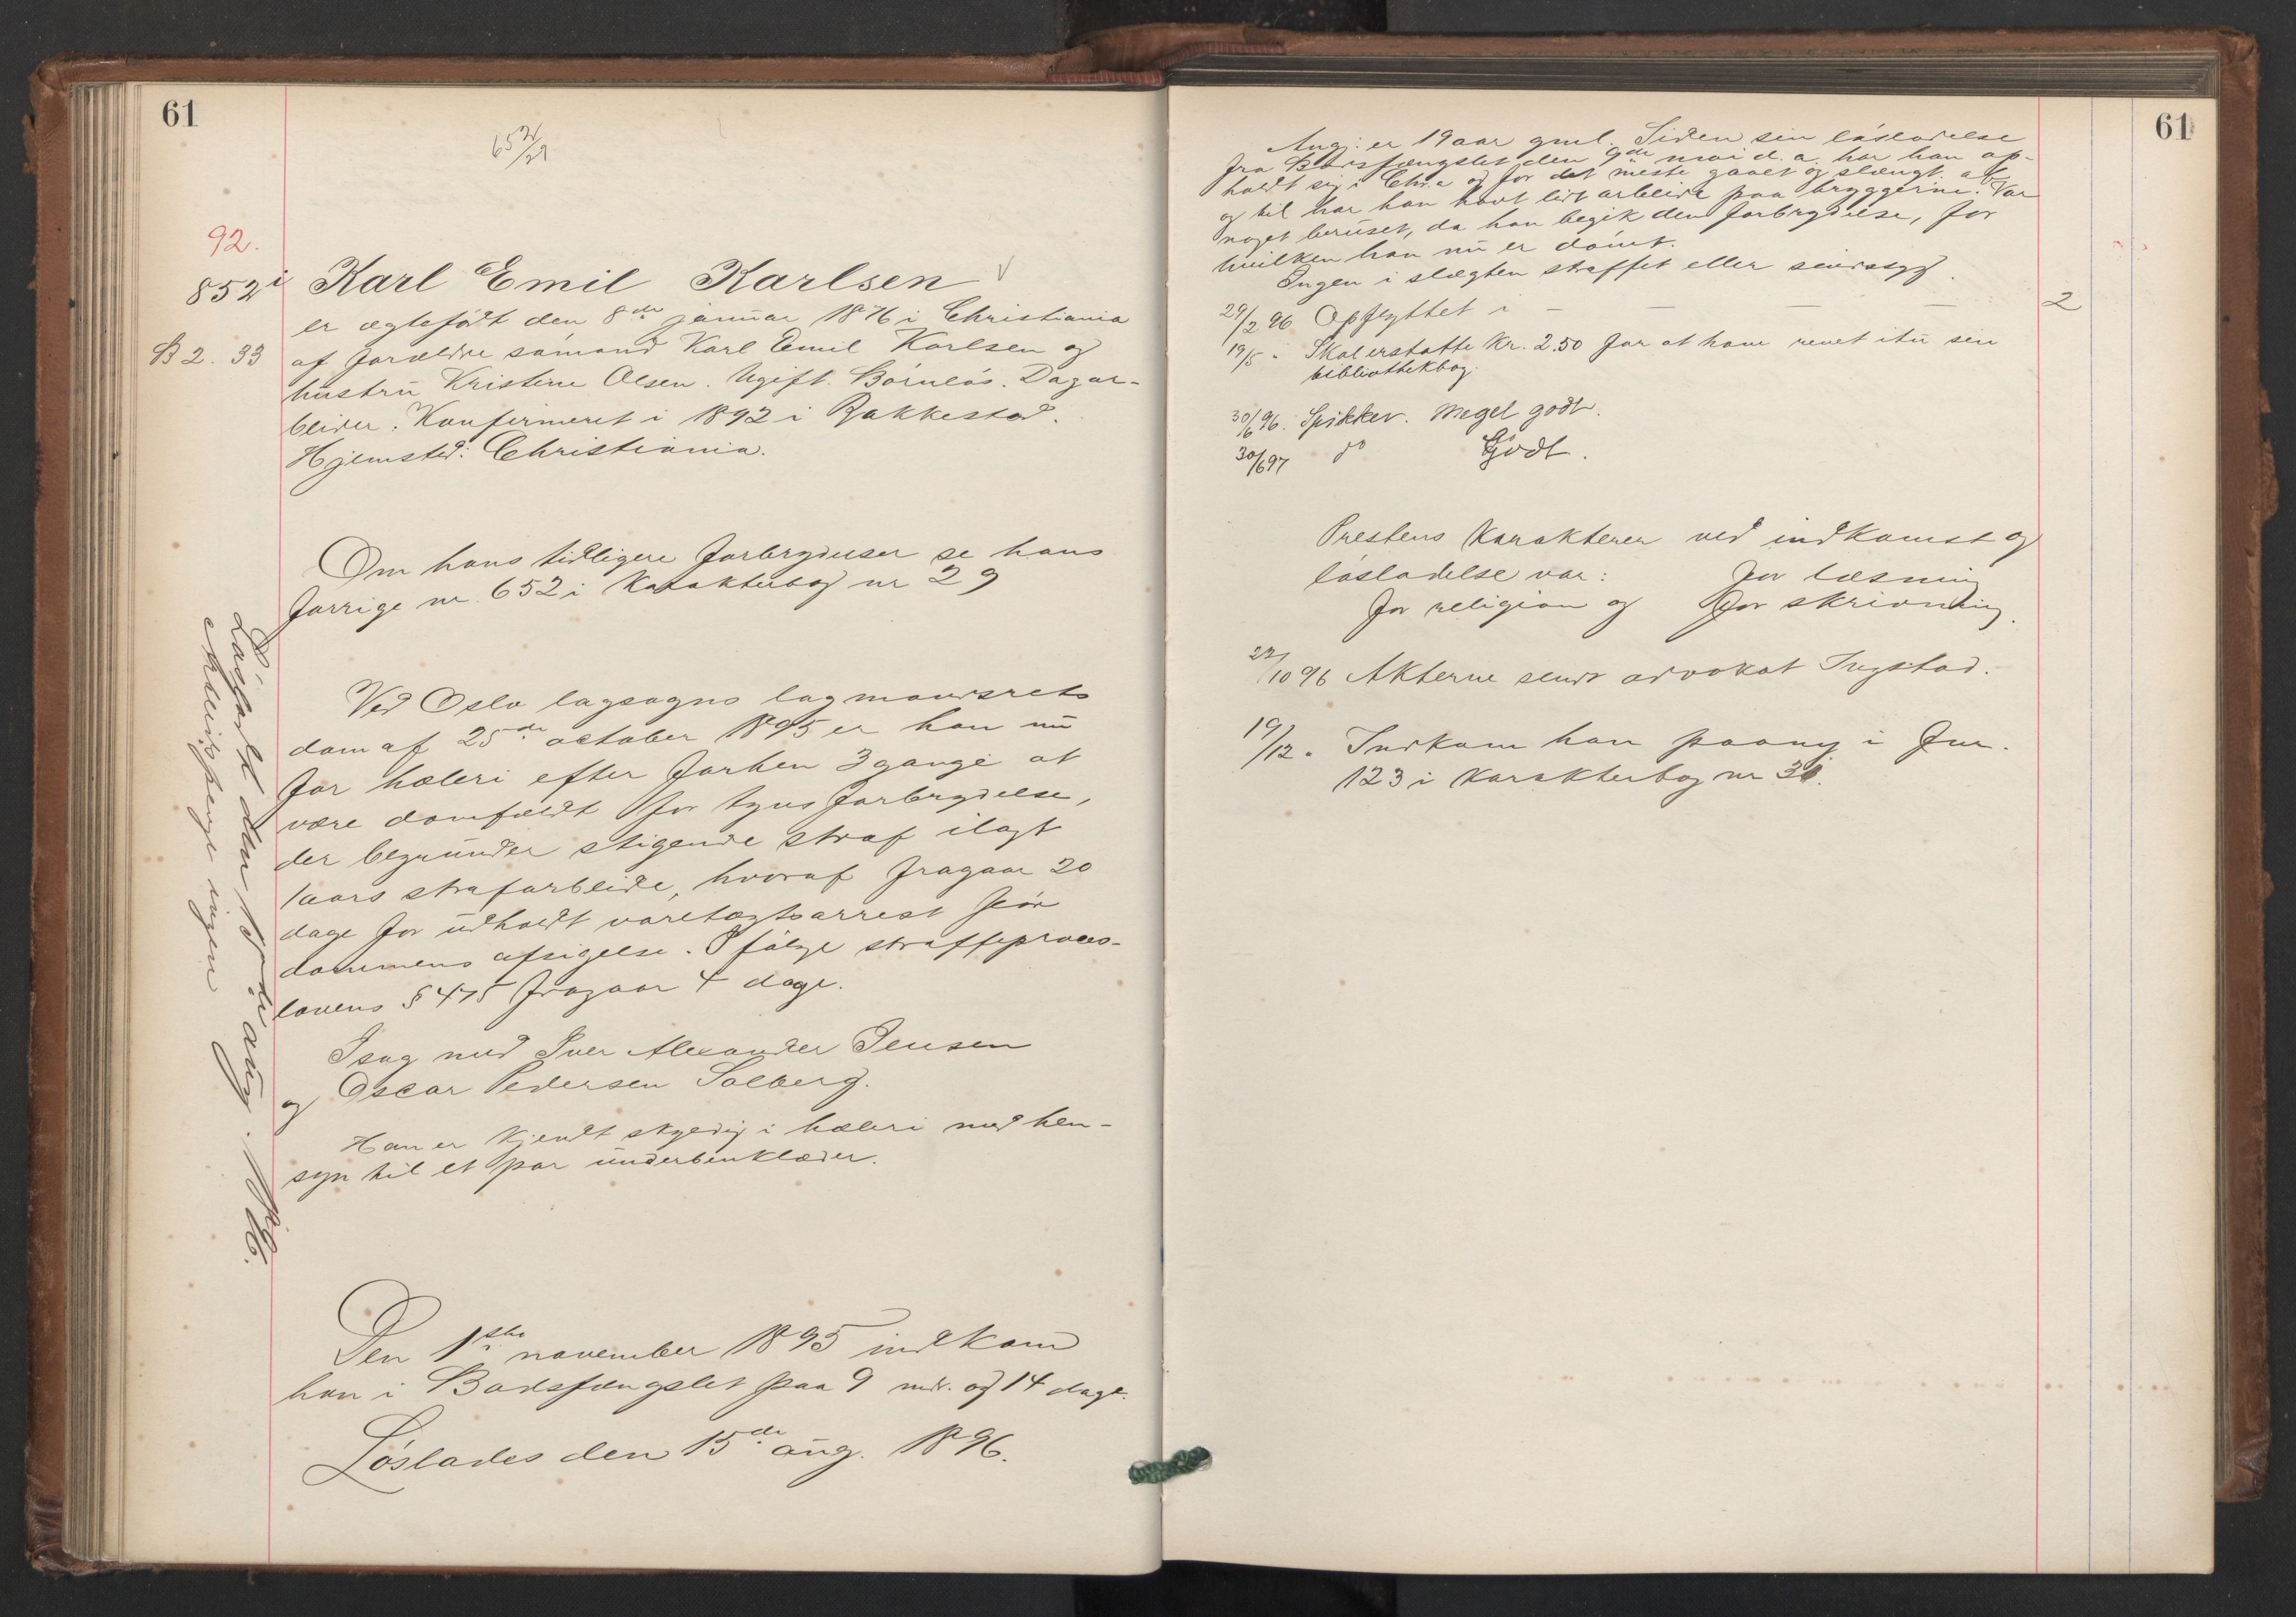 61
652/29
92.
852 i Karl Emil Karlsen
er ægtefödt den 8de januar 1876 i Christiania
B 2. 33 af forældre sömand Karl Emil Karlsen og
hustru Kristine Olsen. Ugift. Börnlös. Dagar-
beider. Konfirmeret i 1892 i Rakkestad.
Hjemsted: Christiania.
Om hans tidligere forbrydelser se hans
forrige nr. 652 i karakterbog nr 29
Ved Oslo lagsogns lagmandsrets
dom af 25de october 1895 er han nu
for hæleri efter forhen 3 gange at
være domfældt for tyvsforbrydelse,
der begrunder stigende straf ilagt
1 aars strafarbeide, hvoraf fragaar 20
dage for udholdt varetægtsarrest för
dommens afsigelse. Ifölge straffeproces-
lovens § 475 fragaar 4 dage.
I sag med Iver Alexander Jensen
og Oscar Pedersen Solberg.
Han er kjendt skyldig i hæleri med hen-
syn til et par underbenklæder.
Den 1ste november 1895 indkom
han i Bodsfængslet paa 9 mdr. og 14 dage.
Löslades den 15de aug. 1896.
Lösladt den 15de aug. 1896.
Arbeidspenge ingen
61
Angj: er 19 aar gml. Siden sin lösladelse
fra Bodsfængslet den 9de mai d. a. har han op-
holdt sig i Chr.a og for det meste gaaet og slængt. af
og til har han havt lidt arbeide paa bryggerne. Var
noget beruset, da han begik den forbrydelse, for
hvilken han nu er dömt.
Ingen i slægten straffet eller sindssyg.
29/2 96 Opflyttet i — — — — 2
19/5 " Skal erstatte Kr. 2.50 for at have revet itu sin
bibliothekbog.
30/6 96. Spikker. Meget godt.
30/6 97 do Godt.
Prestens karakterer ved indkomst og
lösladelse var: for læsning
for religion og for skrivning.
22/10 96 Akterne sendt advokat Ingstad.
19/12 " Indkom han paany i Fnr.
123 i karakterbog nr 31.